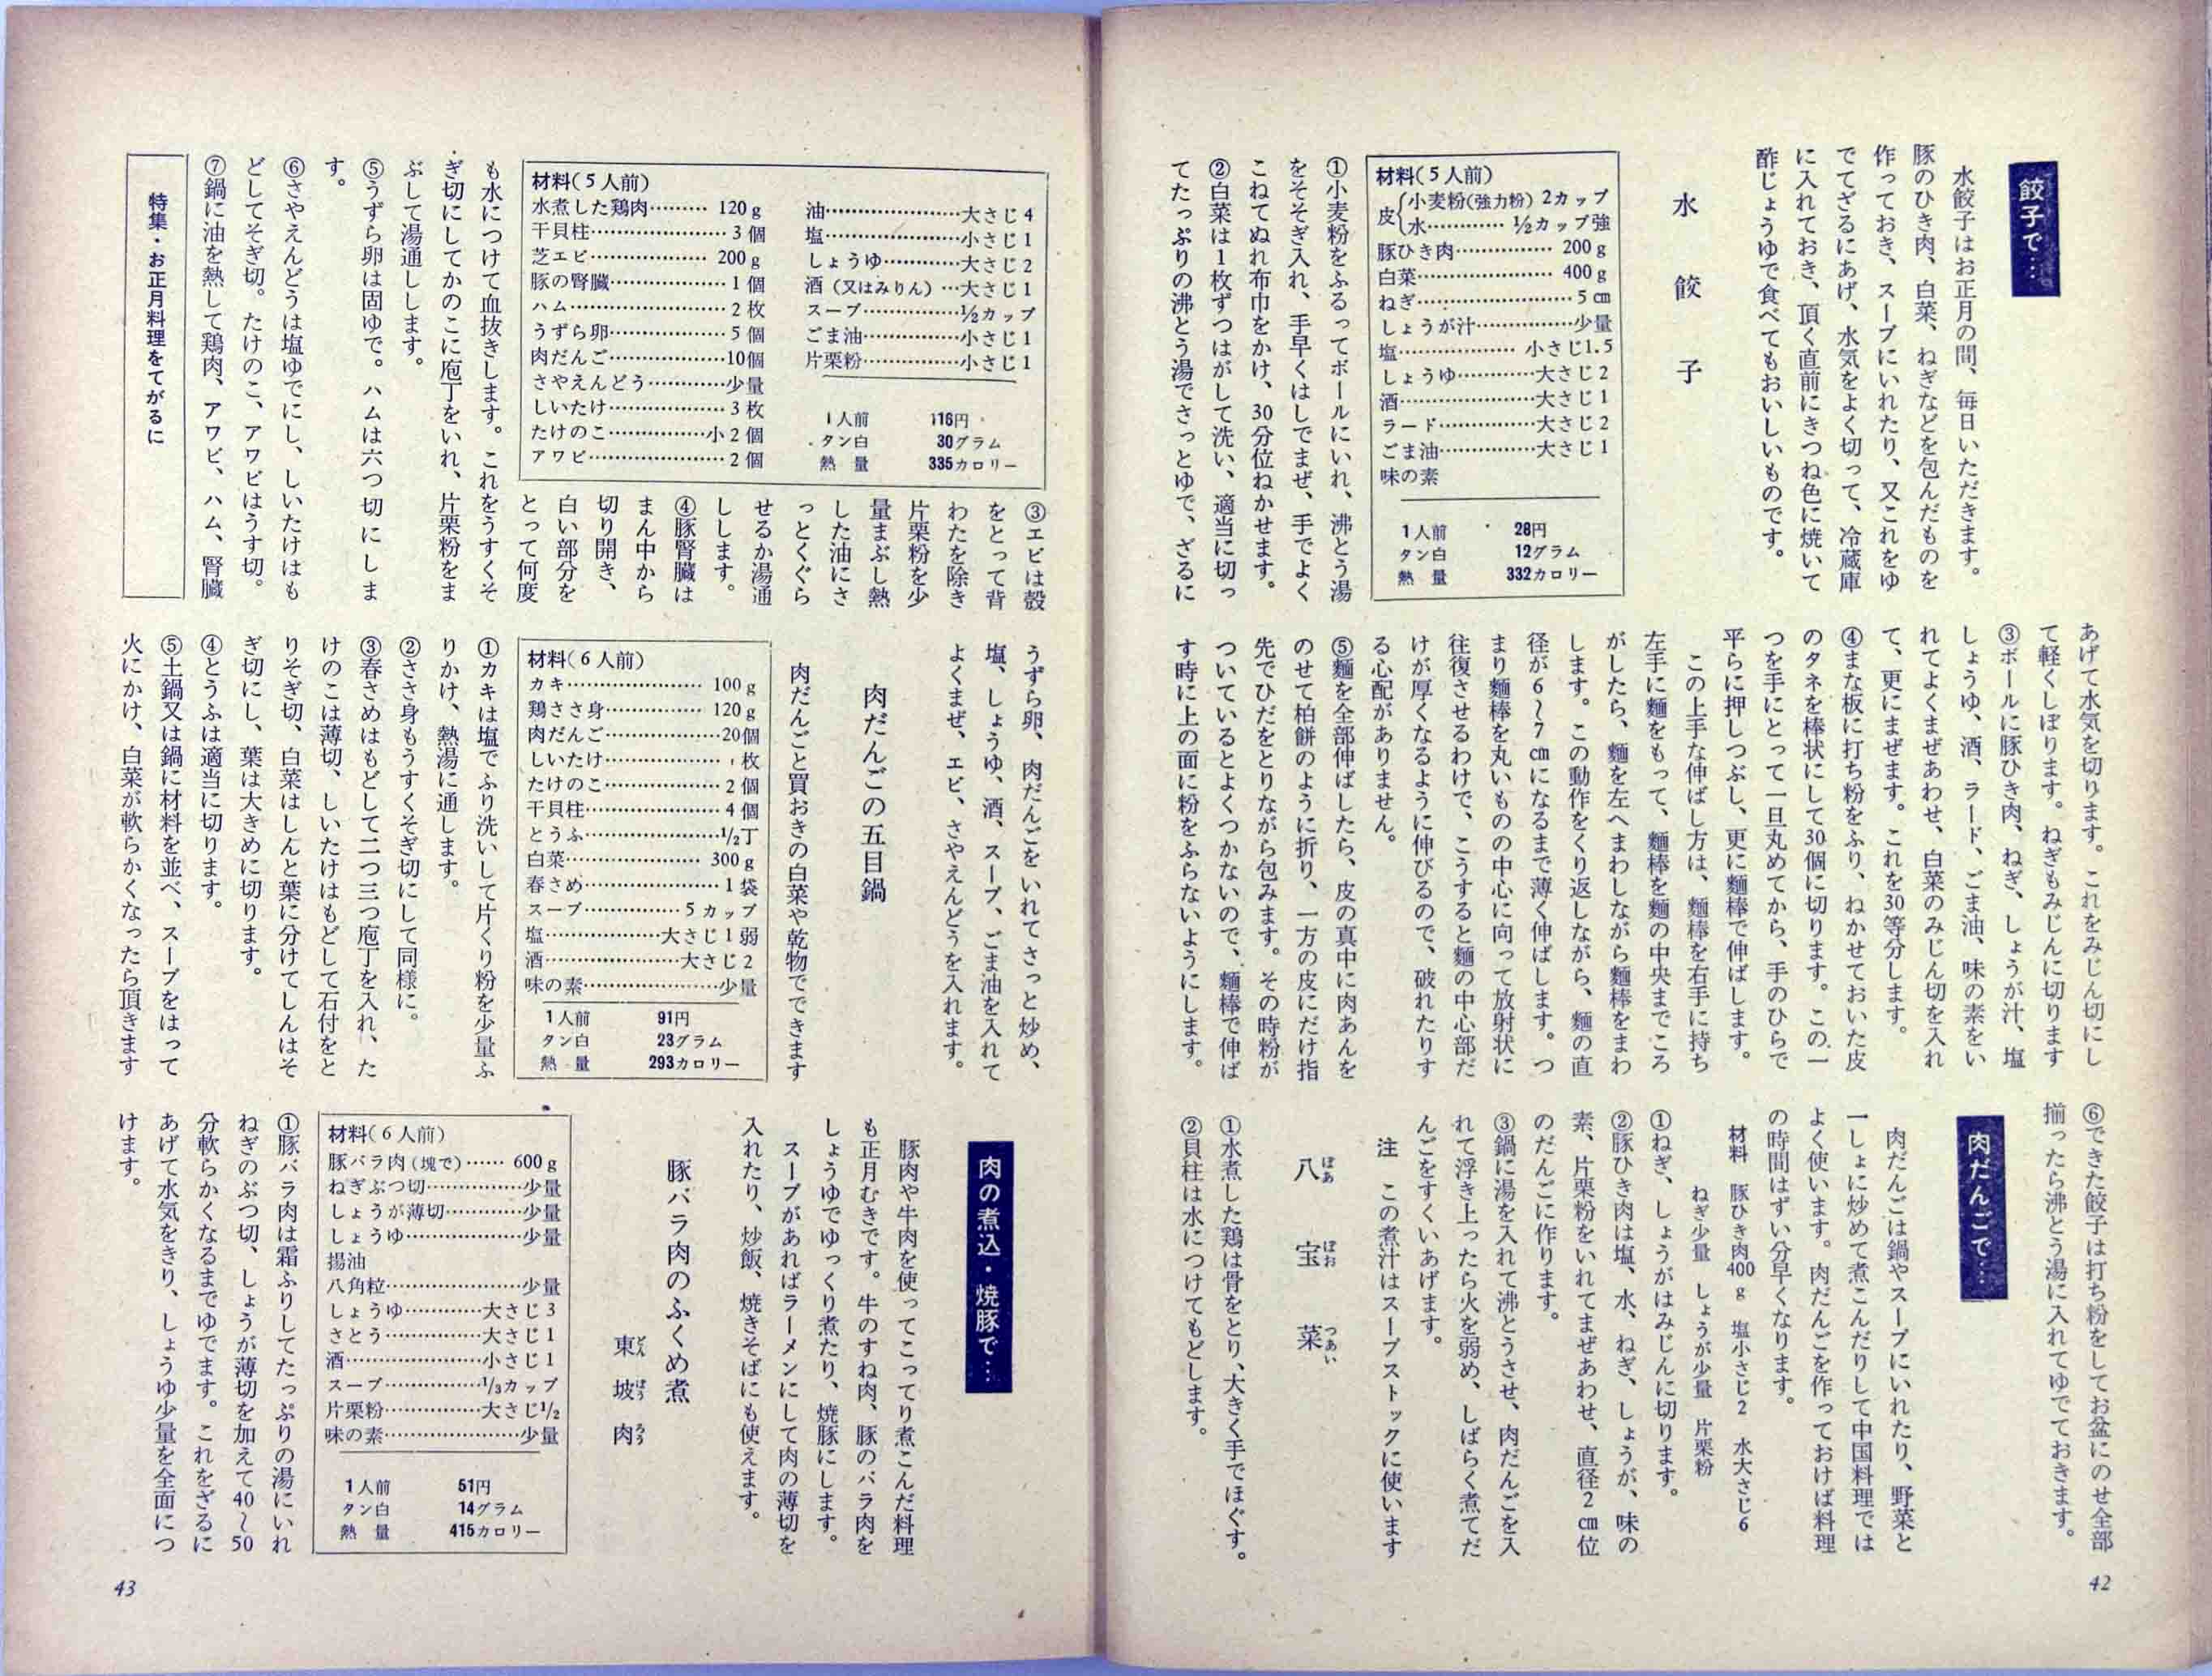 餃子で…
水餃子はお正月の間、毎日いただきます。
豚のひき肉、白菜、ねぎなどを包んだものを
作っておき、スープにいれたり、又これをゆ
でてざるにあげ、水気をよく切って、冷蔵庫
に入れておき、頂く直前にきつね色に焼いて
酢じょうゆで食べてもおいしいものです。
水餃子
材料(5人前)
皮{小麦粉(強力粉) 2カップ
水………… ½カップ強
豚ひき肉………… 200g
白菜………… 400g
ねぎ………… 5cm
しょうが汁…………少量
塩………… 小さじ1.5
しょうゆ…………大さじ2
酒…………大さじ1
ラード…………大さじ2
ごま油…………大さじ1
味の素
1人前 28円
タン白 12グラム
熱量 332カロリー
①小麦粉をふるってボールにいれ、沸とう湯
をそそぎ入れ、手早くはしでまぜ、手でよく
こねてぬれ布巾をかけ、30分位ねかせます。
②白菜は1枚ずつはがして洗い、適当に切っ
てたっぷりの沸とう湯でさっとゆで、ざるに
あげて水気を切ります。これをみじん切にし
て軽くしぼります。ねぎもみじんに切ります
③ボールに豚ひき肉、ねぎ、しょうが汁、塩
しょうゆ、酒、ラード、ごま油、味の素をい
れてよくまぜあわせ、白菜のみじん切を入れ
て、更にまぜます。これを30等分します。
④まな板に打ち粉をふり、ねかせておいた皮
のタネを棒状にして30個に切ります。この一
つを手にとって一旦丸めてから、手のひらで
平らに押しつぶし、更に麺棒で伸ばします。
この上手な伸ばし方は、麺棒を右手に持ち
左手に麺をもって、麺棒を麺の中央までころ
がしたら、麺を左へまわしながら麺棒をまわ
します。この動作をくり返しながら、麺の直
径が6〜7cmになるまで薄く伸ばします。つ
まり麺棒を丸いものの中心に向って放射状に
往復させるわけで、こうすると麺の中心部だ
けが厚くなるように伸びるので、破れたりす
る心配がありません。
⑤麺を全部伸ばしたら、皮の真中に肉あんを
のせて柏餅のように折り、一方の皮にだけ指
先でひだをとりながら包みます。その時粉が
ついているとよくつかないので、麺棒で伸ば
す時に上の面に粉をふらないようにします。
⑥できた餃子は打ち粉をしてお盆にのせ全部
揃ったら沸とう湯に入れてゆでておきます。
肉だんごで…
肉だんごは鍋やスープにいれたり、野菜と
一しょに炒めて煮こんだりして中国料理では
よく使います。肉だんごを作っておけば料理
の時間はずい分早くなります。
材料 豚ひき肉400g 塩小さじ2 水大さじ6
ねぎ少量 しょうが少量 片栗粉
①ねぎ、しょうがはみじんに切ります。
②豚ひき肉は塩、水、ねぎ、しょうが、味の
素、片栗粉をいれてまぜあわせ、直径2cm位
のだんごに作ります。
③鍋に湯を入れて沸とうさせ、肉だんごを入
れて浮き上ったら火を弱め、しばらく煮てだ
んごをすくいあげます。
注 この煮汁はスープストックに使います
八宝菜
ぱあ ぽお つあい
①水煮した鶏は骨をとり、大きく手でほぐす。
②貝柱は水につけてもどします。
42
材料(5人前)
水煮した鶏肉……… 120g
干貝柱………… 3個
芝エビ………… 200g
豚の腎臓………… 1個
ハム………… 2枚
うずら卵………… 5個
肉だんご…………10個
さやえんどう…………少量
しいたけ………… 3枚
たけのこ…………小2個
アワビ………… 2個
油…………大さじ4
塩…………小さじ1
しょうゆ…………大さじ2
酒(又はみりん)…大さじ1
スープ…………½カップ
ごま油…………小さじ1
片栗粉…………小さじ1
1人前 116円
タン白 30グラム
熱量 335カロリー
③エビは殻
をとって背
わたを除き
片栗粉を少
量まぶし熱
した油にさ
っとくぐら
せるか湯通
しします。
④豚腎臓は
まん中から
切り開き、
白い部分を
とって何度
も水につけて血抜きします。これをうすくそ
ぎ切にしてかのこに庖丁をいれ、片栗粉をま
ぶして湯通しします。
⑤うずら卵は固ゆで。ハムは六つ切にしま
す。
⑥さやえんどうは塩ゆでにし、しいたけはも
どしてそぎ切。たけのこ、アワビはうす切。
⑦鍋に油を熱して鶏肉、アワビ、ハム、腎臓
特集・お正月料理をてがるに
うずら卵、肉だんごをいれてさっと炒め、
塩、しょうゆ、酒、スープ、ごま油を入れて
よくまぜ、エビ、さやえんどうを入れます。
肉だんごの五目鍋
肉だんごと買おきの白菜や乾物でできます
材料(6人前)
カキ………… 100g
鶏ささ身………… 120g
肉だんご…………20個
しいたけ…………枚
たけのこ………… 2個
干貝柱………… 4個
とうふ…………½丁
白菜………… 300g
春さめ………… 1袋
スープ…………5カップ
塩…………大さじ1弱
酒…………大さじ2
味の素…………少量
1人前 91円
タン白 23グラム
熱量 293カロリー
①カキは塩でふり洗いして片くり粉を少量ふ
りかけ、熱湯に通します。
②ささ身もうすくそぎ切にして同様に。
③春さめはもどして二つ三つ庖丁を入れ、た
けのこは薄切、しいたけはもどして石付をと
りそぎ切、白菜はしんと葉に分けてしんはそ
ぎ切にし、葉は大きめに切ります。
④とうふは適当に切ります。
⑤土鍋又は鍋に材料を並べ、スープをはって
火にかけ、白菜が軟らかくなったら頂きます
肉の煮込・焼豚で…
豚肉や牛肉を使ってこってり煮こんだ料理
も正月むきです。牛のすね肉、豚のバラ肉を
しょうゆでゆっくり煮たり、焼豚にします。
スープがあればラーメンにして肉の薄切を
入れたり、炒飯、焼きそばにも使えます。
豚バラ肉のふくめ煮
東坡肉
どん ぽう ろう
材料(6人前)
豚バラ肉(塊で)…… 600g
ねぎぶつ切…………少量
しょうが薄切…………少量
しょうゆ…………少量
揚油
八角粒…………少量
しょうゆ…………大さじ3
さとう…………大さじ1
酒…………小さじ1
スープ…………⅓カップ
片栗粉…………大さじ½
味の素…………少量
1人前 51円
タン白 14グラム
熱量 415カロリー
①豚バラ肉は霜ふりしてたっぷりの湯にいれ
ねぎのぶつ切、しょうが薄切を加えて40〜50
分軟らかくなるまでゆでます。これをざるに
あげて水気をきり、しょうゆ少量を全面につ
けます。
43